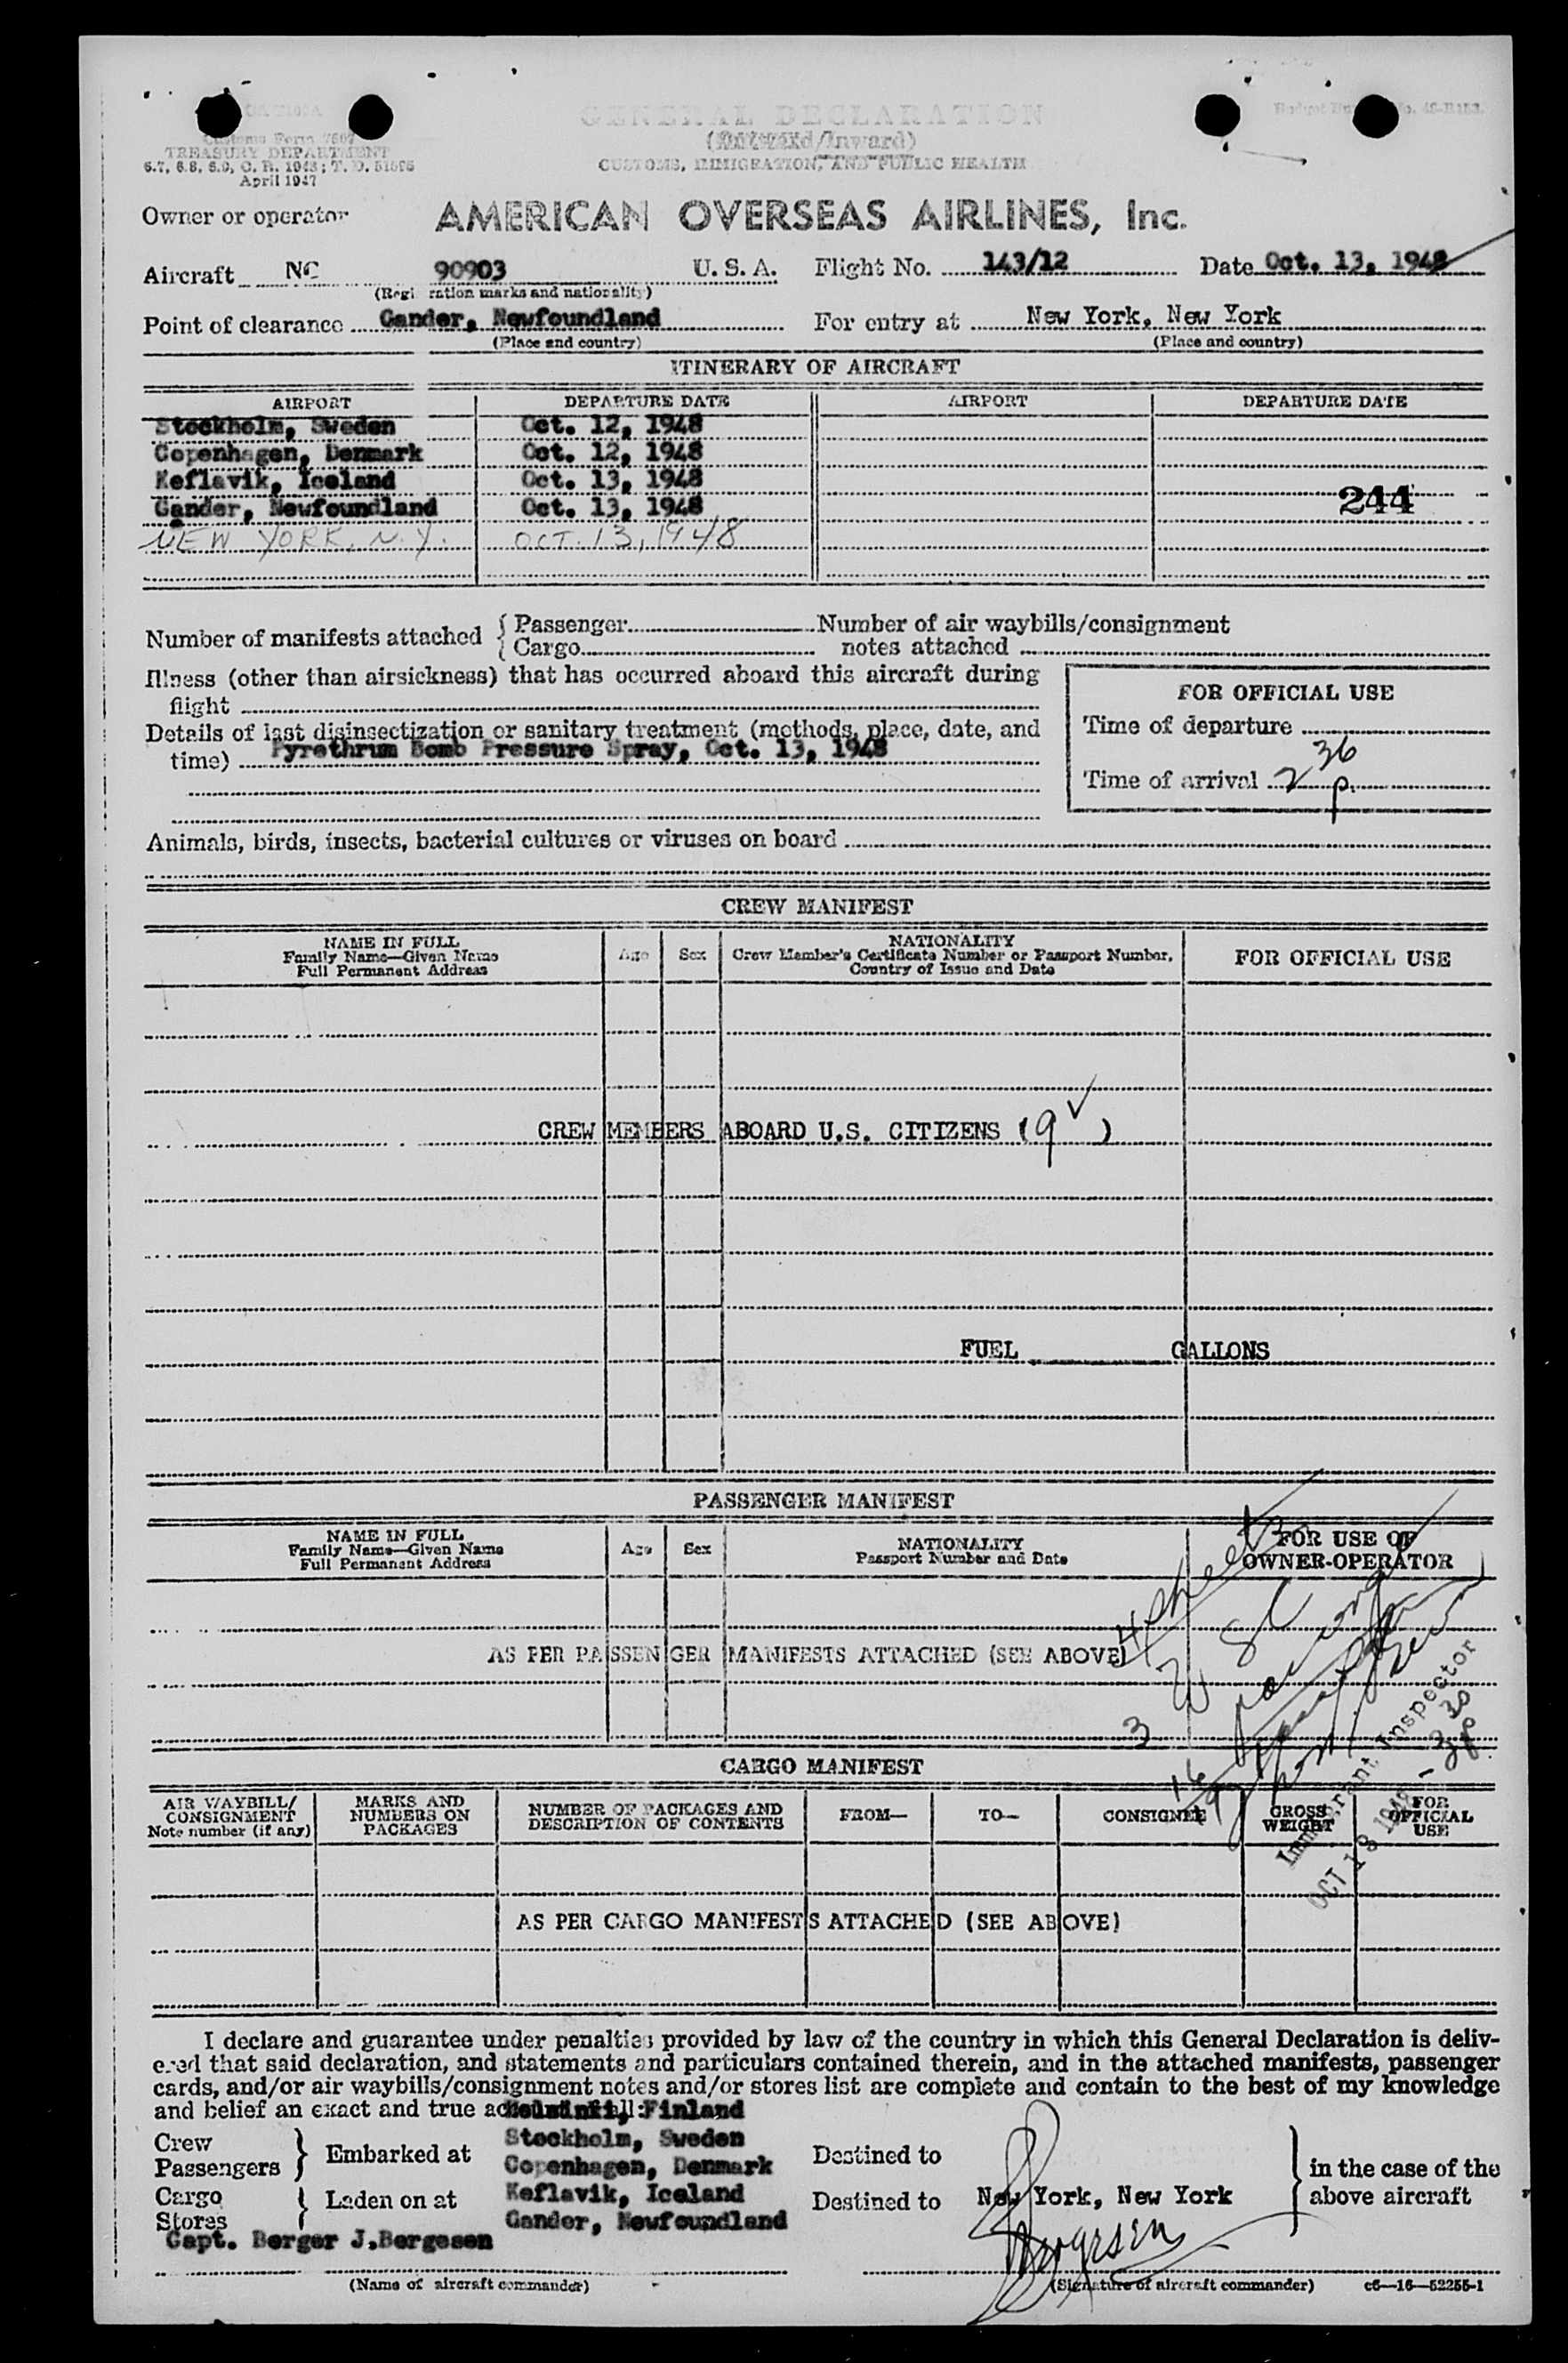 Customs Form 7507
TREASURY DEPARTMENT
April 1947
GENERAL DECLARATION
(Outward/Inward)
CUSTOMS, IMMIGRATION, AND PUBLIC HEALTH
Owner or operator AMERICAN OVERSEAS AIRLINES, Inc.
Aircraft NC 90903 U. S. A. Flight No. 143/12 Date Oct. 13, 1948
(Registration marks and nationality)
Point of clearance Gander, Newfoundland For entry at New York, New York
(Place and country) (Place and country)
ITINERARY OF AIRCRAFT
AIRPORT DEPARTURE DATE AIRPORT DEPARTURE DATE
Stockholm, Sweden Oct. 12, 1948
Copenhagen, Denmark Oct. 12, 1948
Keflavik, Iceland Oct. 13, 1948
Gander, Newfoundland Oct. 13, 1948 244
NEW YORK, N.Y. OCT. 13, 1948
Number of manifests attached { Passenger Number of air waybills/consignment
{ Cargo notes attached
Illness (other than airsickness) that has occurred aboard this aircraft during
flight
FOR OFFICIAL USE
Time of departure
Time of arrival 2 36 p.
Details of last disinsectization or sanitary treatment (methods, place, date, and
time) Pyrethrum Bomb Pressure Spray, Oct. 13, 1948
Animals, birds, insects, bacterial cultures or viruses on board
CREW MANIFEST
NAME IN FULL
Family Name—Given Name
Full Permanent Address
Age
Sex
NATIONALITY
Crew Member's Certificate Number or Passport Number,
Country of Issue and Date
FOR OFFICIAL USE
CREW MEMBERS ABOARD U.S. CITIZENS (9 ✓)
FUEL GALLONS
PASSENGER MANIFEST
NAME IN FULL
Family Name—Given Name
Full Permanent Address
Age
Sex
NATIONALITY
Passport Number and Date
FOR USE OF
OWNER-OPERATOR
4 sheets
AS PER PASSENGER MANIFESTS ATTACHED (SEE ABOVE)
Immigrant Inspector
OCT 13 1948 - 3 30 p
CARGO MANIFEST
AIR WAYBILL/
CONSIGNMENT
Note number (if any)
MARKS AND
NUMBERS ON
PACKAGES
NUMBER OF PACKAGES AND
DESCRIPTION OF CONTENTS
FROM—
TO—
CONSIGNEE
GROSS
WEIGHT
FOR
OFFICIAL
USE
AS PER CARGO MANIFESTS ATTACHED (SEE ABOVE)
I declare and guarantee under penalties provided by law of the country in which this General Declaration is deliv-
ered that said declaration, and statements and particulars contained therein, and in the attached manifests, passenger
cards, and/or air waybills/consignment notes and/or stores list are complete and contain to the best of my knowledge
and belief an exact and true account of all:
Helsinki, Finland
Crew
Passengers } Embarked at Stockholm, Sweden
Copenhagen, Denmark Destined to
Cargo
Stores } Laden on at Keflavik, Iceland
Gander, Newfoundland Destined to New York, New York } in the case of the
above aircraft
Capt. Berger J.Bergesen
(Name of aircraft commander) (Signature of aircraft commander) c6—16—52255-1